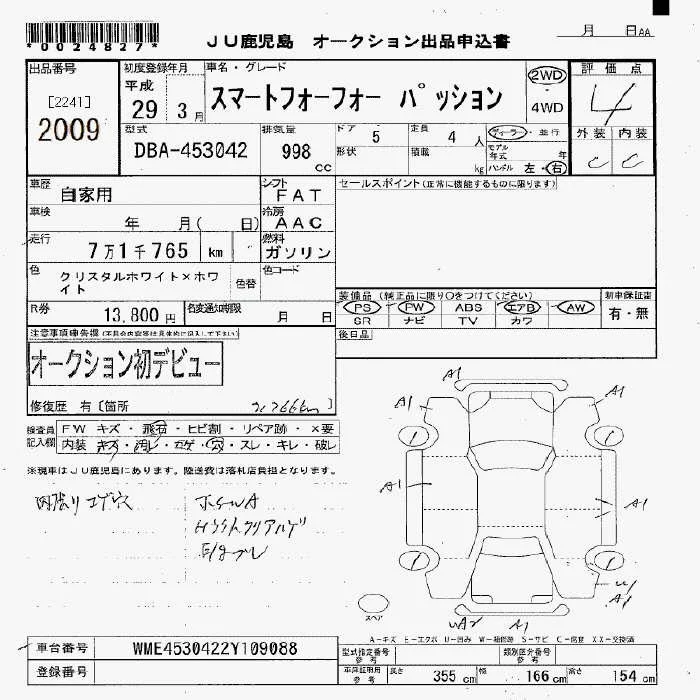 *0024827*
JU鹿児島 オークション出品申込書
月 日AA
出品番号
[2241]
2009
初度登録年月
平成
29 3月
車名・グレード
スマートフォーフォー パッション
2WD
・
4WD
評価点
4
型式
DBA-453042
排気量
998 cc
ドア 5
定員 4 人
形状
積載 kg
ディーラー・並行
モデル年式 年
ハンドル 左・右
外装 内装
C C
車歴 自家用
シフト FAT
セールスポイント(正常に機能するものに限ります)
車検 年 月( 日)
冷房 AAC
走行 7万1千765 km
燃料 ガソリン
色 クリスタルホワイト×ホワ
イト
色替
色コード
R券 13,800 円
名変通知期限 月 日
装備品(純正品に限り○をつけてください)
PS・PW・ABS・エアB・AW
SR ナビ TV カワ
新車保証書
有・無
後日品
注意事項申告欄(不具合内容等は具体的に記入して下さい)
オークション初デビュー
修復歴 有〔箇所 〕
検査員
記入欄
FW キズ・飛石・ヒビ割・リペア跡・×要
内装 キズ・汚レ・コゲ・穴・スレ・キレ・破レ
※現車はJU鹿児島にあります。陸送費は落札店負担となります。
A1
A1
A1
A1
A1
A1
A1
スペア
A-キズ E-エクボ U-凹み W-補修跡 S-サビ C-腐食 XX-交換済
車台番号 WME4530422Y109088
登録番号
型式指定番号
参考
類別区分番号
参考
車庫証明用
参考
長さ 355 cm
幅 166 cm
高さ 154 cm